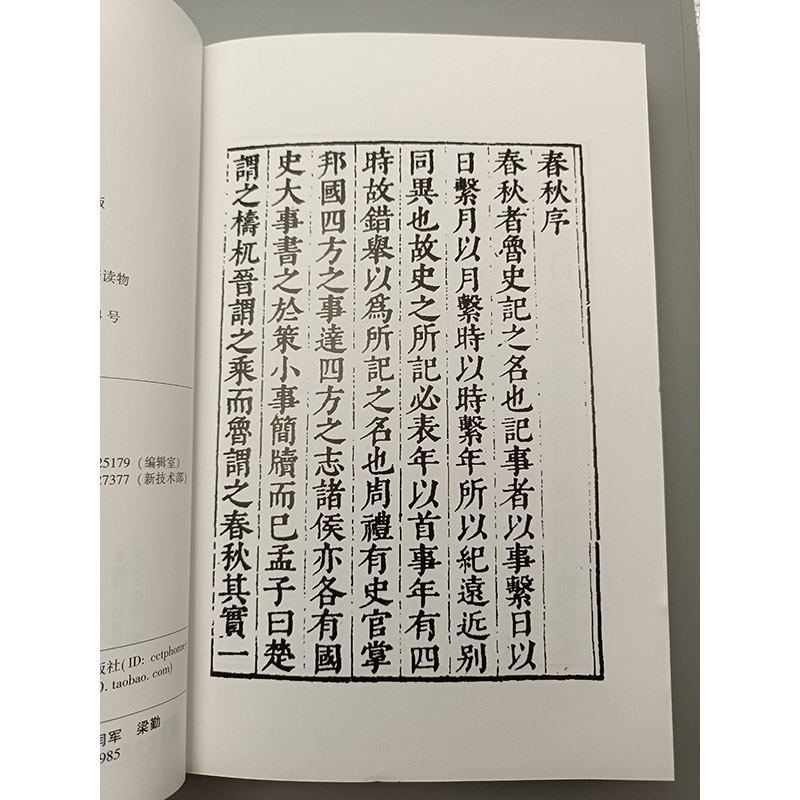 春秋序
春秋者魯史記之名也記事者以事繫日以
日繫月以月繫時以時繫年所以紀遠近别
同異也故史之所記必表年以首事年有四
時故錯舉以爲所記之名也周禮有史官掌
邦國四方之事達四方之志諸侯亦各有國
史大事書之於策小事簡牘而已孟子曰楚
謂之檮杌晉謂之乘而魯謂之春秋其實一
版
读物
号
25179（编辑室）
27377（新技术部）
版社(ID: cctphome)
O. taobao. com)
闫军 梁勤
985